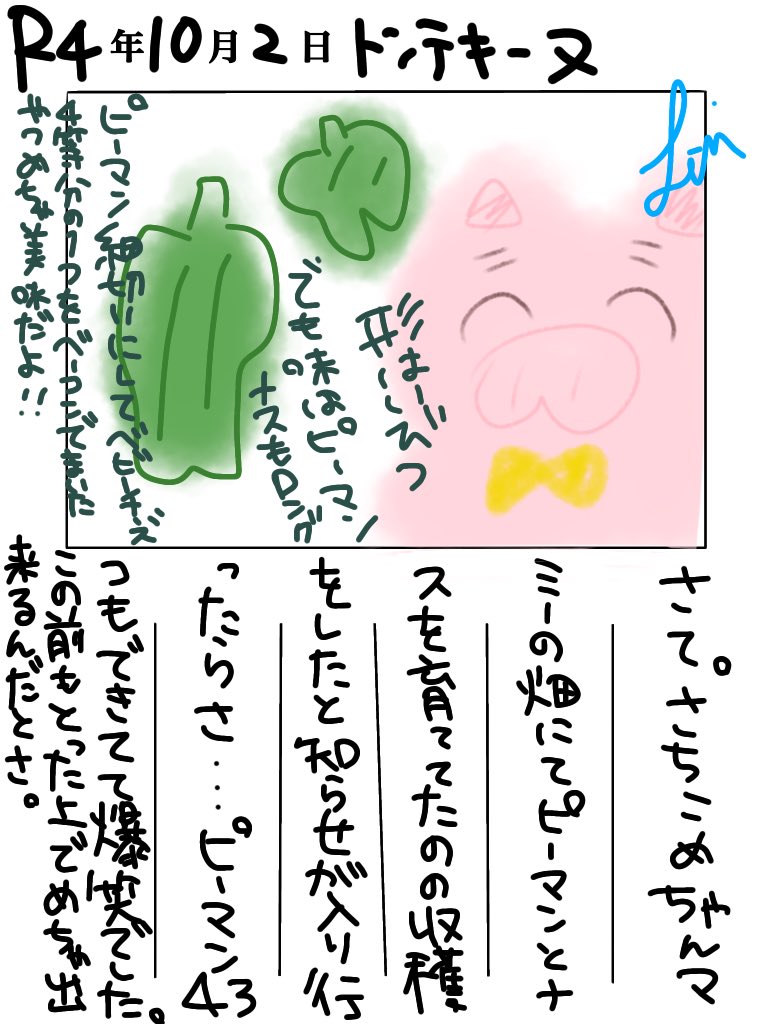 R4年10月2日 ドンテキーヌ
Lin
形はいびつ
でも味はピーマン
ナスもロング
ピーマン細切りにしてベビーチーズ
4等分の1つをベーコンでまいた
やつめちゃ美味だよ!!
さて。さちこめちゃんマ
ミーの畑にてピーマンとナ
スを育ててたのの収穫
をしたと知らせが入り行
ったらさ・・・ピーマン43
コもできてて爆笑でした。
この前もとった上でめちゃ出
来るんだとさ。